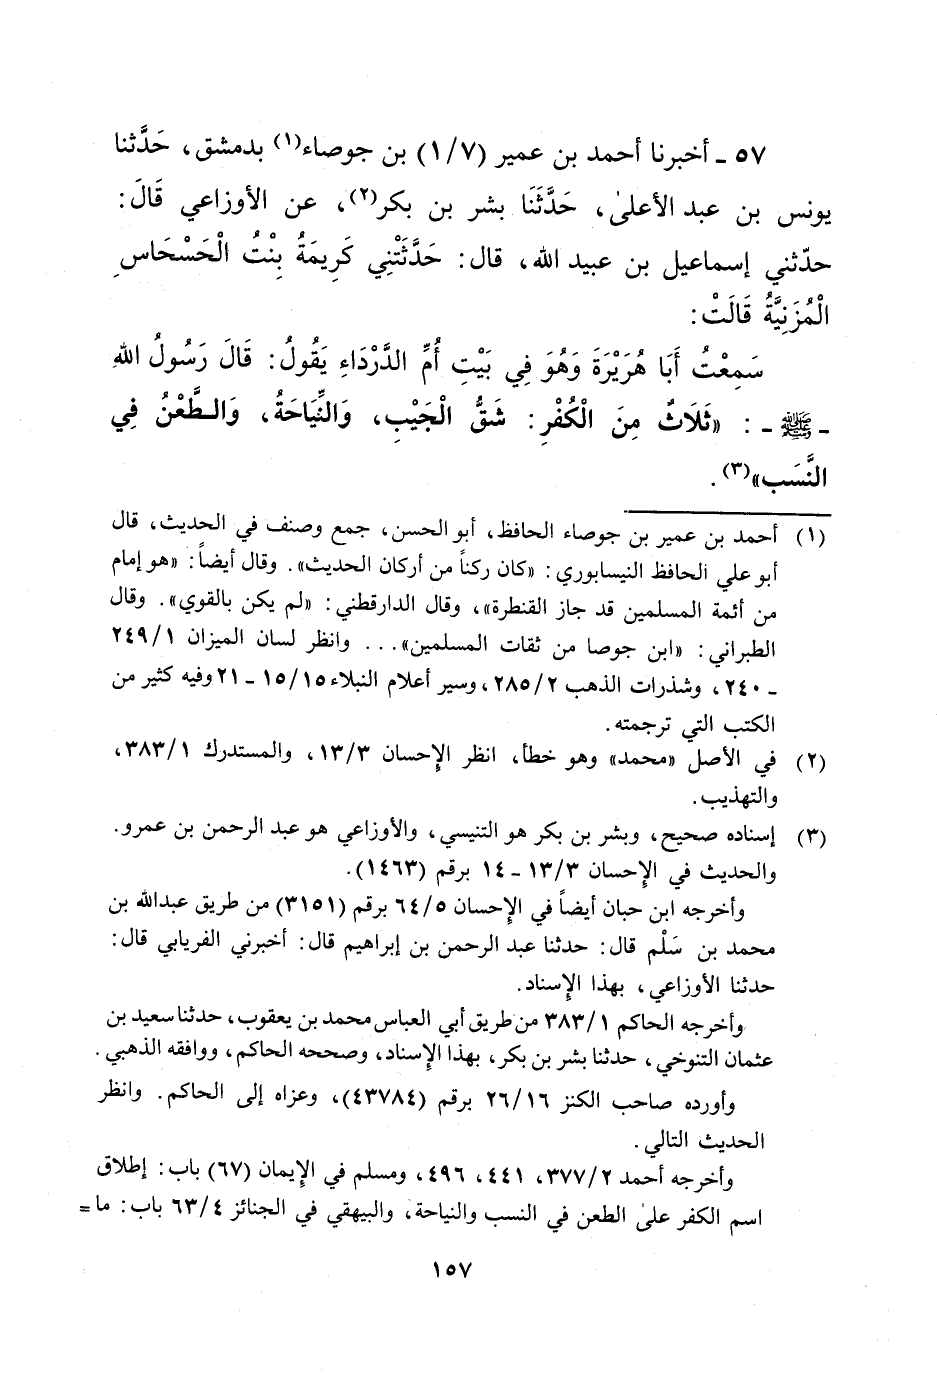 ٥٧ ـ أخبرنا أحمد بن عمير (١/٧) بن جوصاء(١) بدمشق، حَدَّثنا
يونس بن عبد الأعلىٰ، حَدَّثَنَا بشر بن بكر(٢)، عن الأوزاعي قَالَ:
حدّثني إسماعيل بن عبيد الله، قال: حَدَّثَتْنِي كَرِيمَةُ بِنْتُ الْحَسْحَاسِ
الْمُزَنِيَّةُ قَالَتْ:
سَمِعْتُ أَبَا هُرَيْرَةَ وَهُوَ فِي بَيْتِ أُمِّ الدَّرْدَاءِ يَقُولُ: قَالَ رَسُولُ اللهِ
ـ ﷺ ـ: «ثَلَاثٌ مِنَ الْكُفْرِ: شَقُّ الْجَيْبِ، وَالنِّيَاحَةُ، وَالطَّعْنُ فِي
النَّسَبِ»(٣).
(١) أحمد بن عمير بن جوصاء الحافظ، أبو الحسن، جمع وصنف في الحديث، قال
أبو علي الحافظ النيسابوري: «كان ركناً من أركان الحديث». وقال أيضاً: «هو إمام
من أئمة المسلمين قد جاز القنطرة»، وقال الدارقطني: «لم يكن بالقوي». وقال
الطبراني: «ابن جوصا من ثقات المسلمين»... وانظر لسان الميزان ٢٤٩/١
ـ ٢٤٠، وشذرات الذهب ٢٨٥/٢، وسير أعلام النبلاء ١٥/١٥ ـ ٢١ وفيه كثير من
الكتب التي ترجمته.
(٢) في الأصل «محمد» وهو خطأ، انظر الإحسان ١٣/٣، والمستدرك ٣٨٣/١،
والتهذيب.
(٣) إسناده صحيح، وبشر بن بكر هو التنيسي، والأوزاعي هو عبد الرحمن بن عمرو.
والحديث في الإحسان ١٣/٣ ـ ١٤ برقم (١٤٦٣).
وأخرجه ابن حبان أيضاً في الإحسان ٦٤/٥ برقم (٣١٥١) من طريق عبدالله بن
محمد بن سَلْم قال: حدثنا عبد الرحمن بن إبراهيم قال: أخبرني الفريابي قال:
حدثنا الأوزاعي، بهذا الإسناد.
وأخرجه الحاكم ٣٨٣/١ من طريق أبي العباس محمد بن يعقوب، حدثنا سعيد بن
عثمان التنوخي، حدثنا بشر بن بكر، بهذا الإسناد، وصححه الحاكم، ووافقه الذهبي.
وأورده صاحب الكنز ٢٦/١٦ برقم (٤٣٧٨٤)، وعزاه إلى الحاكم. وانظر
الحديث التالي.
وأخرجه أحمد ٣٧٧/٢، ٤٤١، ٤٩٦، ومسلم في الإيمان (٦٧) باب: إطلاق
اسم الكفر علىٰ الطعن في النسب والنياحة، والبيهقي في الجنائز ٦٣/٤ باب: ما=
١٥٧